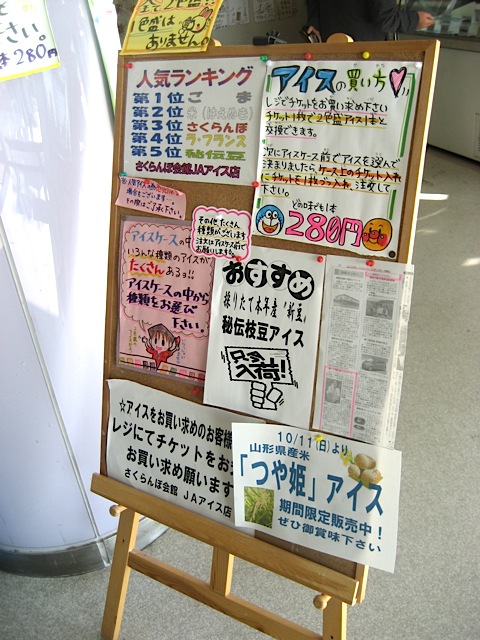 ま 280円
1色盛は
ありません。
人気ランキング
第1位 ごま
第2位 米(はえぬき)
第3位 さくらんぼ
第4位 ラ・フランス
第5位 秘伝豆
さくらんぼ会館 JAアイス店
アイスの買い方
レジでチケットをお買い求め下さい
チケット1枚で2色盛アイス1本と
交換できます。
次にアイスケース前でアイスを選んで
決まりましたら、ケース上のチケット入れ
にチケットを1枚づつ入れ、注文して
下さい。
どの味でも1本
280円
その他たくさん
種類がございます
注文はアイスケース前で
お願いしますね。
アイスケースの中
いろんな種類のアイスが
たくさんあるョ!!
アイスケースの中から
種類をお選び
下さい。
おすすめ
採りたて本年産「新豆」
秘伝枝豆アイス
只今
入荷!
☆アイスをお買い求めのお客様
レジにてチケットをお
お買い求め願います
さくらんぼ会館 JAアイス店
10/11(日)より
山形県産米
「つや姫」アイス
期間限定販売中!
ぜひ御賞味下さい